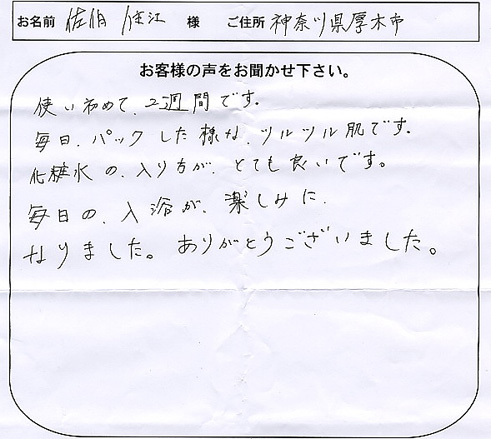 お名前 佐伯 佳江 様 ご住所 神奈川県厚木市
お客様の声をお聞かせ下さい。
使い初めて、2週間です。
毎日、パックした様な、ツルツル肌です。
化粧水の、入り方が、とても良いです。
毎日の、入浴が、楽しみに、
なりました。ありがとうございました。